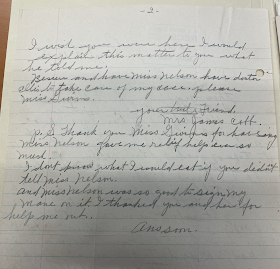 - 2 -
I wish you were here I would
explain this matter to you what
he told me.
and have Miss Nelson have
to take care of my case. please
Miss
your Friend,
Mrs James Cobb.
P.S Thank you Miss for having
Miss Nelson gave me relief help ever so
much.
I don't know what I would eat if you didn't
tell Miss Nelson.
and Miss Nelson was so good to sign my
name on it I thanked you and her for
help me out.
Ans soon.